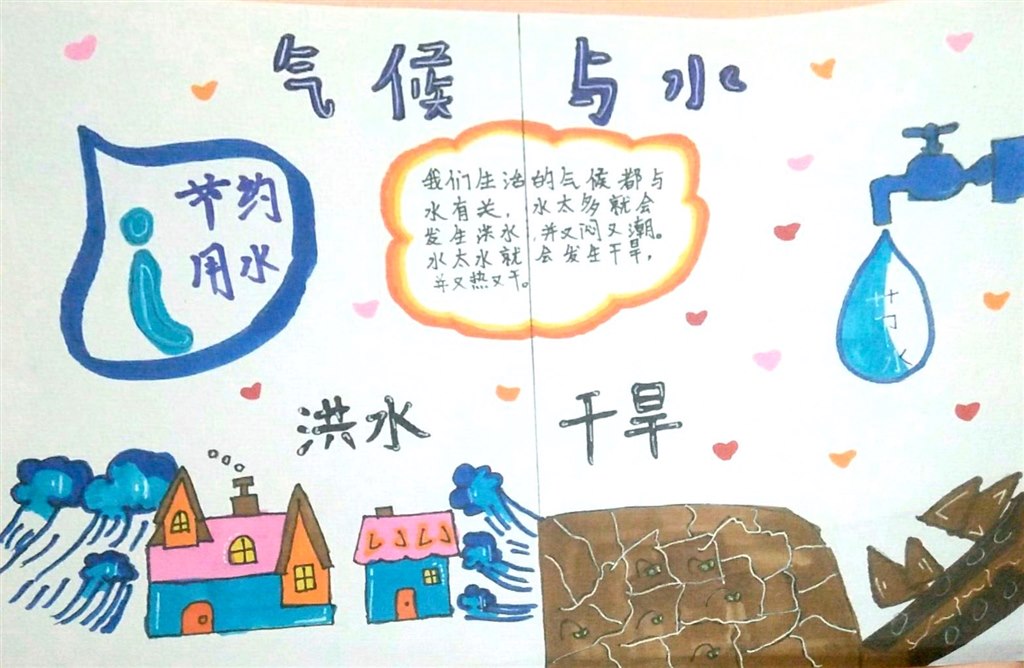 气候与水
节约
用水
我们生活的气候都与
水有关，水太多就会
发生洪水，并又闷又潮。
水太水就会发生干旱，
并又热又干。
节
水
洪水
干旱